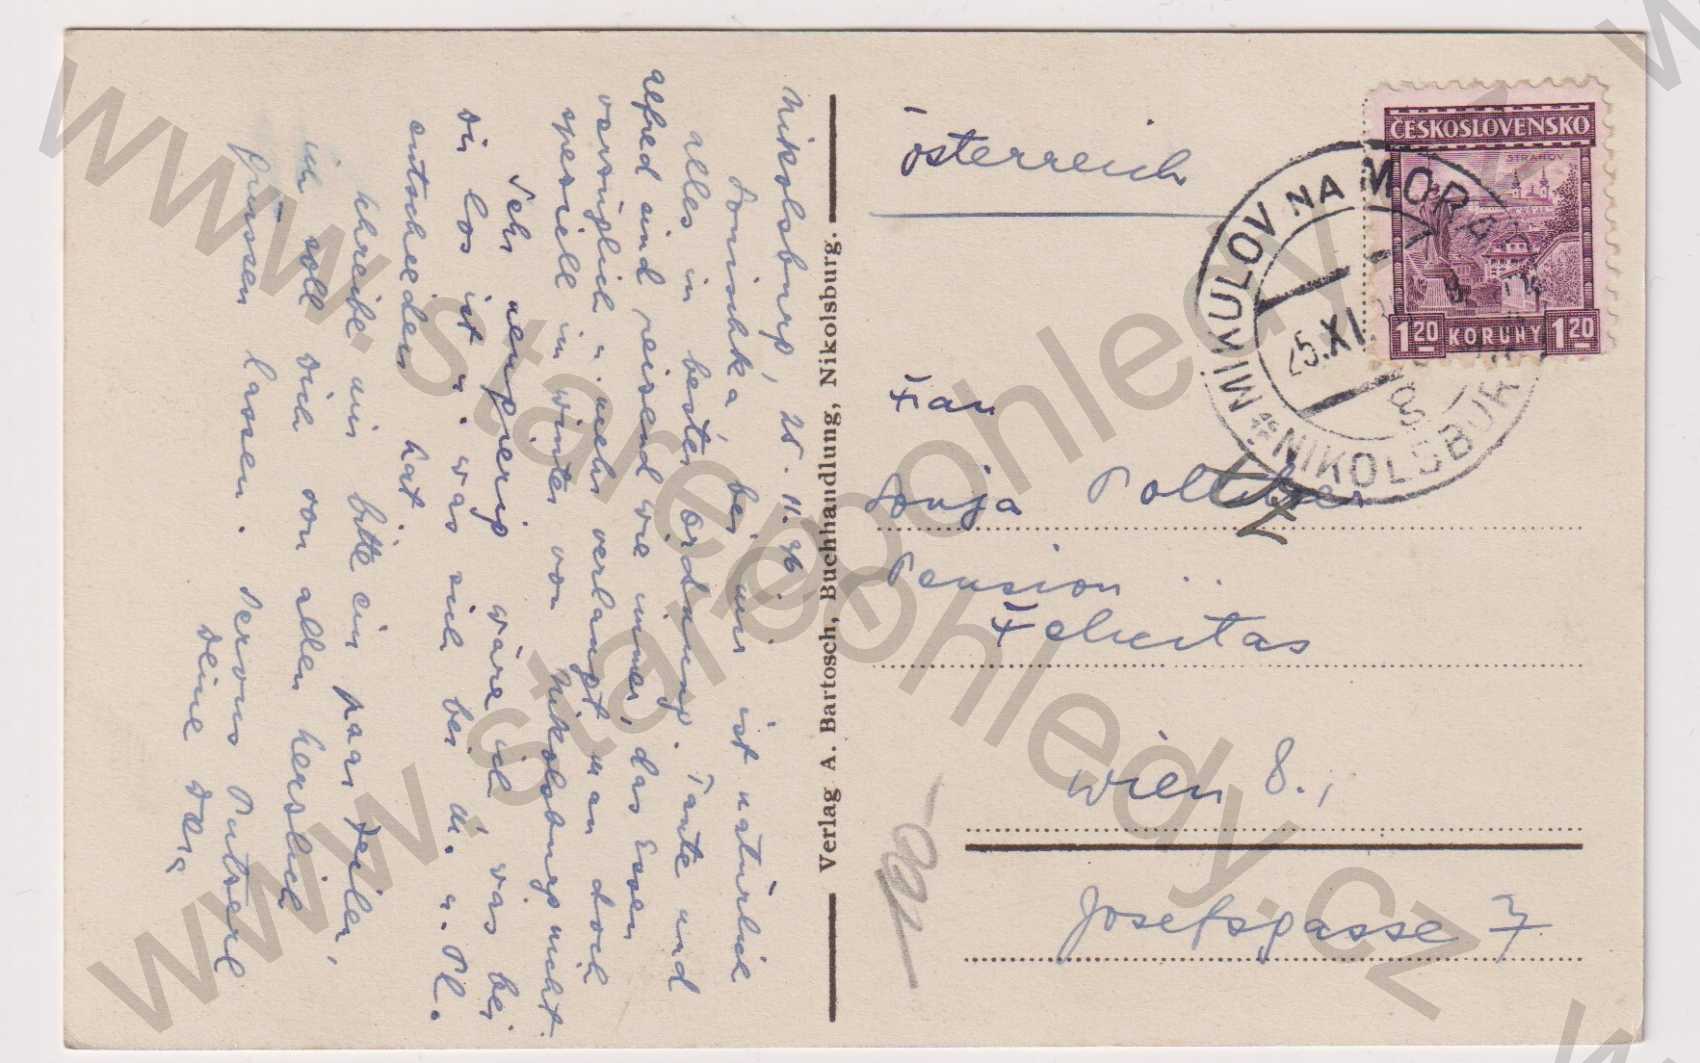 Nikolsburg, 25. 11. 36.
bei mir ist natürlich
alles in bester Ordnung. Tante und
Alfred sind reizend wie immer, das Essen
vorzüglich u. mehr verlangt man doch
speziell im Winter von Nikolsburg nicht.
Sehr neugierig wäre ich was bei
Dir los ist u. was sich bei u. Pl.
entschieden hat.
Schreibe mir bitte ein paar Zeilen,
ich soll Dich von allen herzlich
grüssen lassen. Servus
Deine
Verlag A. Bartosch, Buchhandlung, Nikolsburg.
Österreich
ČESKOSLOVENSKO
STRAHOV
1.20 KORUNY 1.20
MIKULOV NA MORAVĚ
25.XI.
* NIKOLSBURG
Frau
Sonja
Pension
Felicitas
Wien 8.,
Josefsgasse 7
100-
www.starepohledy.cz
www.starepohledy.cz